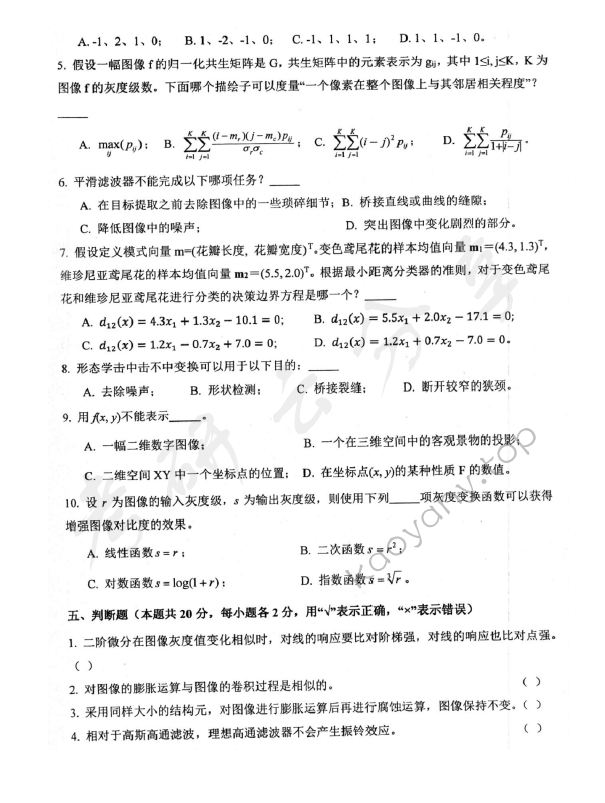 A. -1、2、1、0；  B. 1、-2、-1、0；  C. -1、1、1、1；  D. 1、1、-1、0。
5. 假设一幅图像 f 的归一化共生矩阵是 G，共生矩阵中的元素表示为 gᵢⱼ，其中 1≤i, j≤K，K 为
图像 f 的灰度级数。下面哪个描绘子可以度量“一个像素在整个图像上与其邻居相关程度”？
______
A. max_{ij}(p_{ij})；  B. \sum_{i=1}^{K}\sum_{j=1}^{K}\frac{(i-m_r)(j-m_c)p_{ij}}{\sigma_r\sigma_c}；  C. \sum_{i=1}^{K}\sum_{j=1}^{K}(i-j)^2 p_{ij}；  D. \sum_{i=1}^{K}\sum_{j=1}^{K}\frac{p_{ij}}{1+|i-j|}。
6. 平滑滤波器不能完成以下哪项任务？_____
A. 在目标提取之前去除图像中的一些琐碎细节；B. 桥接直线或曲线的缝隙；
C. 降低图像中的噪声；  D. 突出图像中变化剧烈的部分。
7. 假设定义模式向量 m=(花瓣长度, 花瓣宽度)ᵀ。变色鸢尾花的样本均值向量 m₁=(4.3, 1.3)ᵀ，
维珍尼亚鸢尾花的样本均值向量 m₂=(5.5, 2.0)ᵀ。根据最小距离分类器的准则，对于变色鸢尾
花和维珍尼亚鸢尾花进行分类的决策边界方程是哪一个？_____
A. d₁₂(x) = 4.3x₁ + 1.3x₂ − 10.1 = 0;  B. d₁₂(x) = 5.5x₁ + 2.0x₂ − 17.1 = 0;
C. d₁₂(x) = 1.2x₁ − 0.7x₂ + 7.0 = 0;  D. d₁₂(x) = 1.2x₁ + 0.7x₂ − 7.0 = 0。
8. 形态学击中击不中变换可以用于以下目的：_____
A. 去除噪声；  B. 形状检测；  C. 桥接裂缝；  D. 断开较窄的狭颈。
9. 用 f(x, y)不能表示_____。
A. 一幅二维数字图像；  B. 一个在三维空间中的客观景物的投影；
C. 二维空间 XY 中一个坐标点的位置；  D. 在坐标点(x, y)的某种性质 F 的数值。
10. 设 r 为图像的输入灰度级，s 为输出灰度级，则使用下列_____项灰度变换函数可以获得
增强图像对比度的效果。
A. 线性函数 s = r；  B. 二次函数 s = r²；
C. 对数函数 s = log(1+r)；  D. 指数函数 s = ∛r。
五、判断题（本题共 20 分，每小题各 2 分，用“√”表示正确，“×”表示错误）
1. 二阶微分在图像灰度值变化相似时，对线的响应要比对阶梯强，对线的响应也比对点强。
（ ）
2. 对图像的膨胀运算与图像的卷积过程是相似的。 （ ）
3. 采用同样大小的结构元，对图像进行膨胀运算后再进行腐蚀运算，图像保持不变。（ ）
4. 相对于高斯高通滤波，理想高通滤波器不会产生振铃效应。 （ ）
考研云分享
kaoyany.top